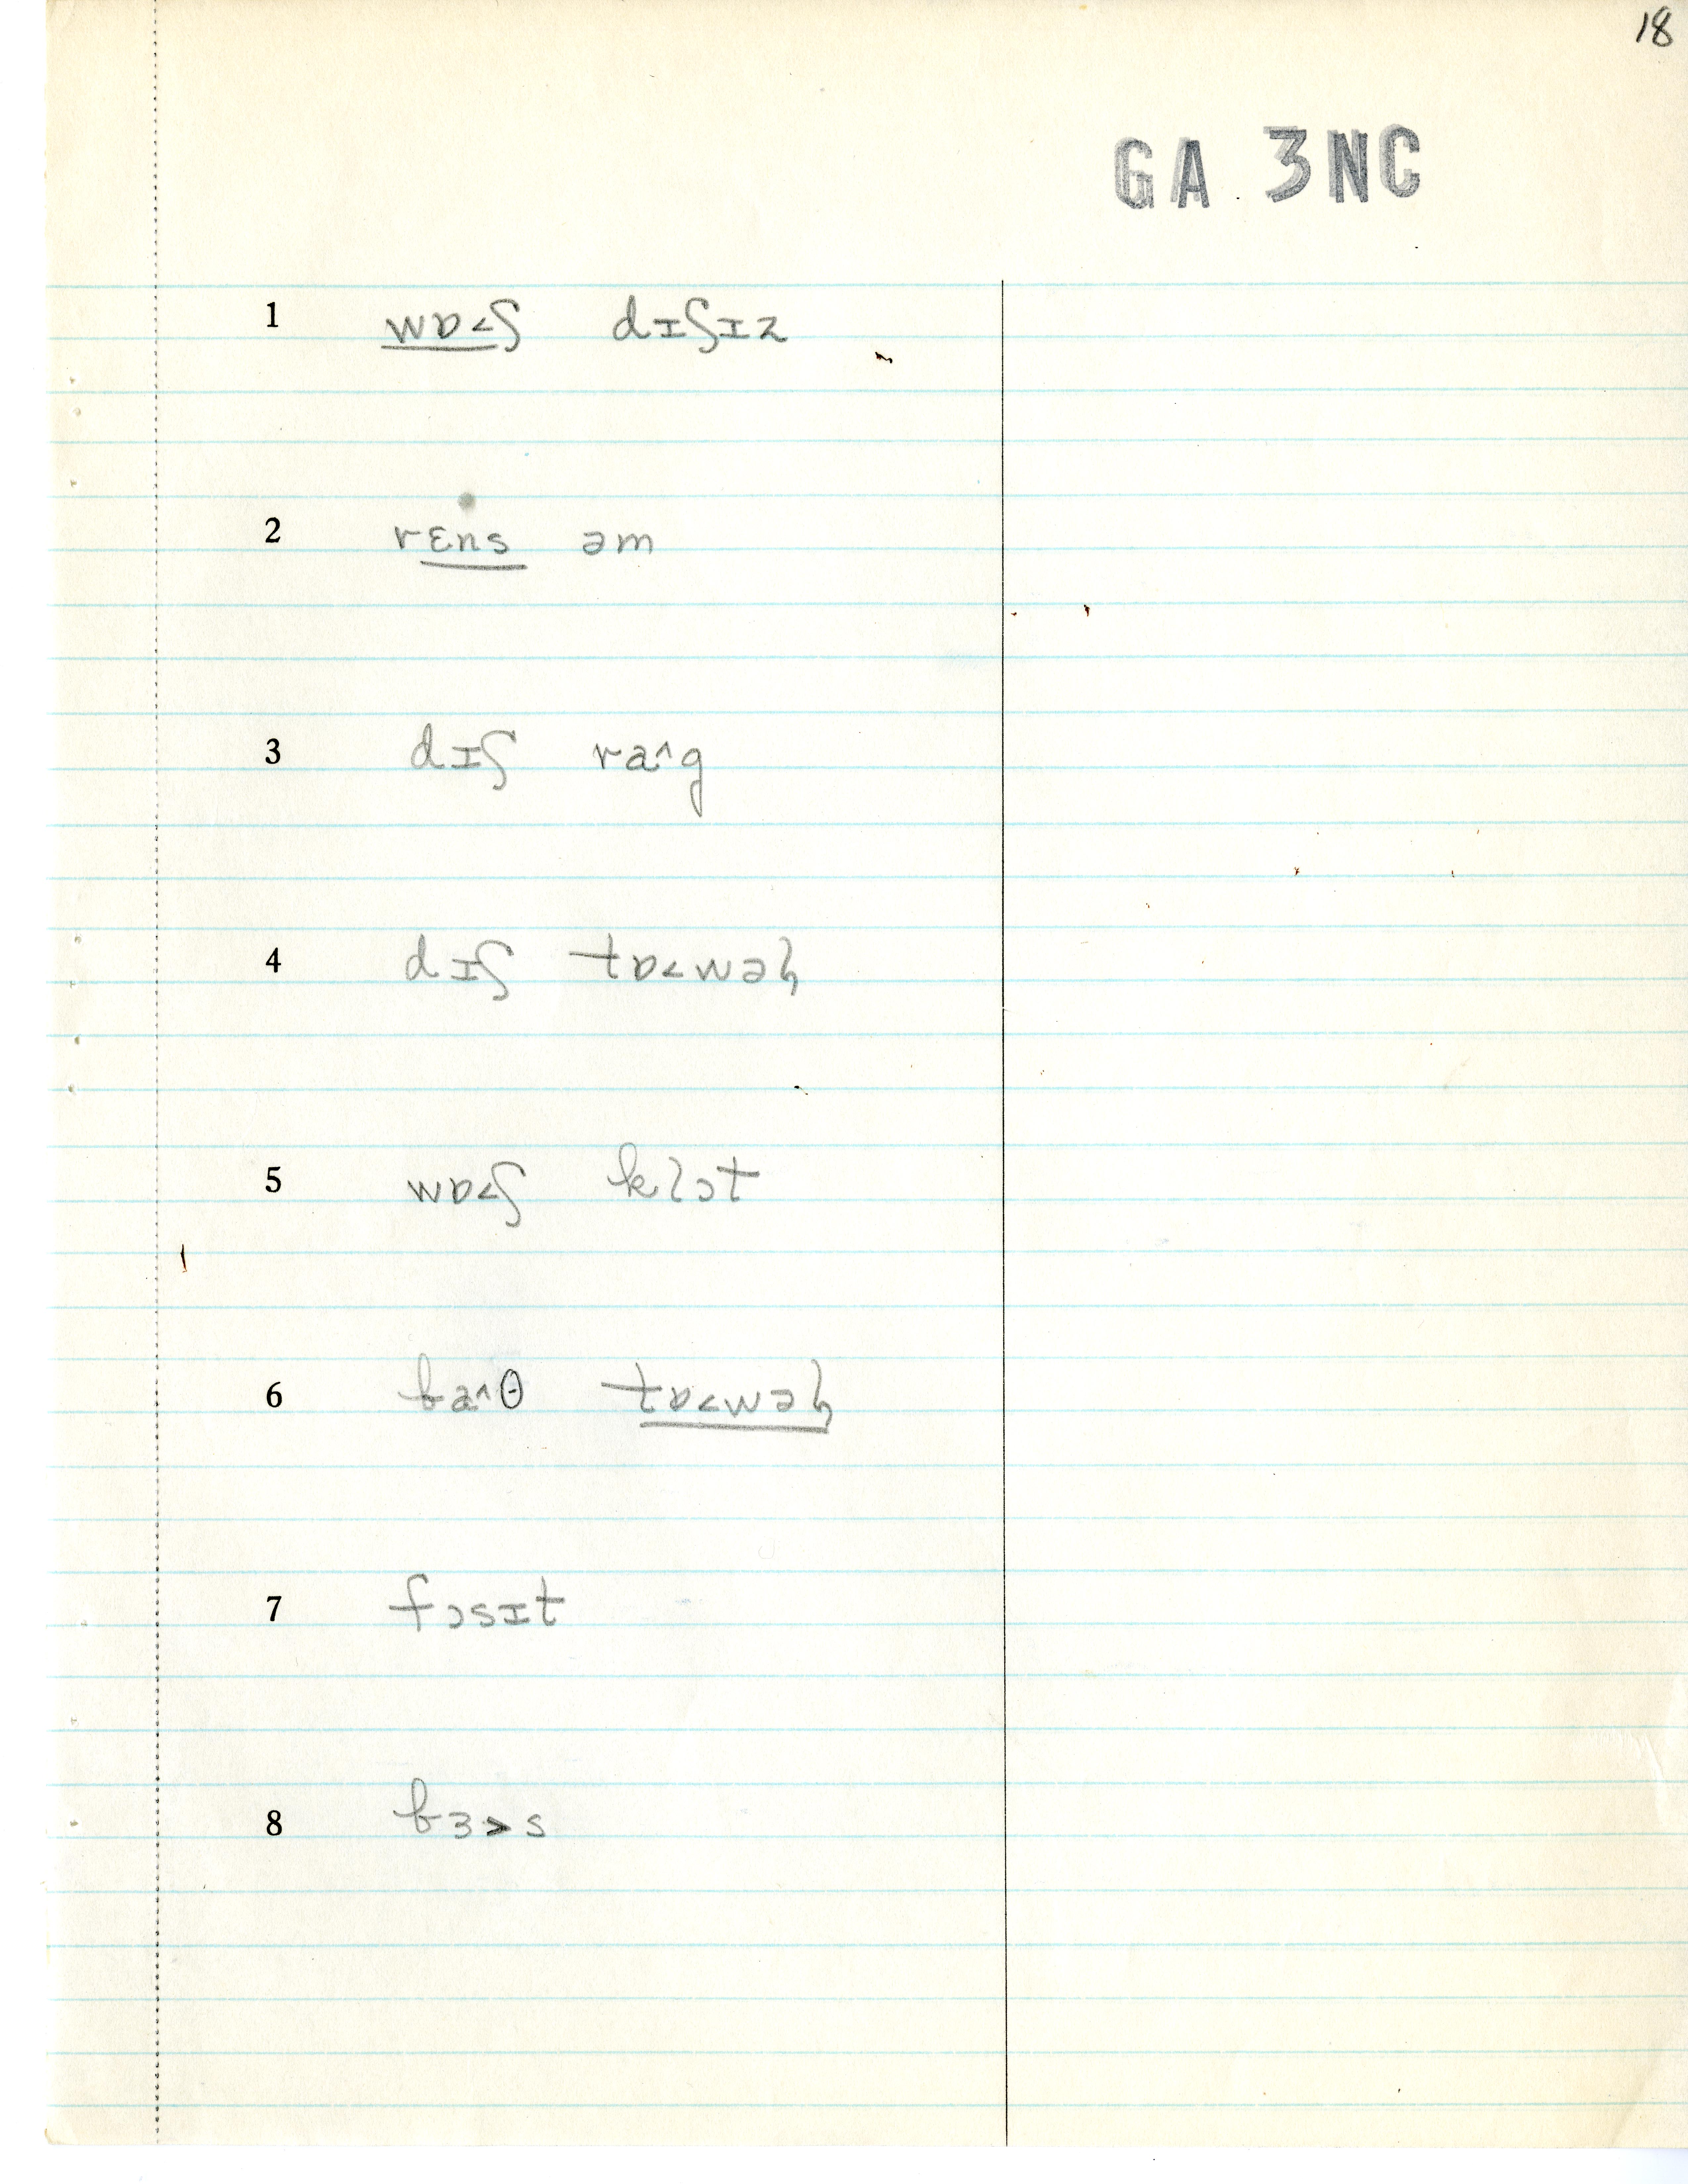 18
GA 3NC
1 wɒ<ʃ dɪʃɪz
2 rɛns əm
3 dɪʃ ra^g
4 dɪʃ tɒ<wəl̡
5 wɒ<ʃ klɔt
6 ba^θ tɒ<wəl̡
7 fɔsɪt
8 bɜ>s